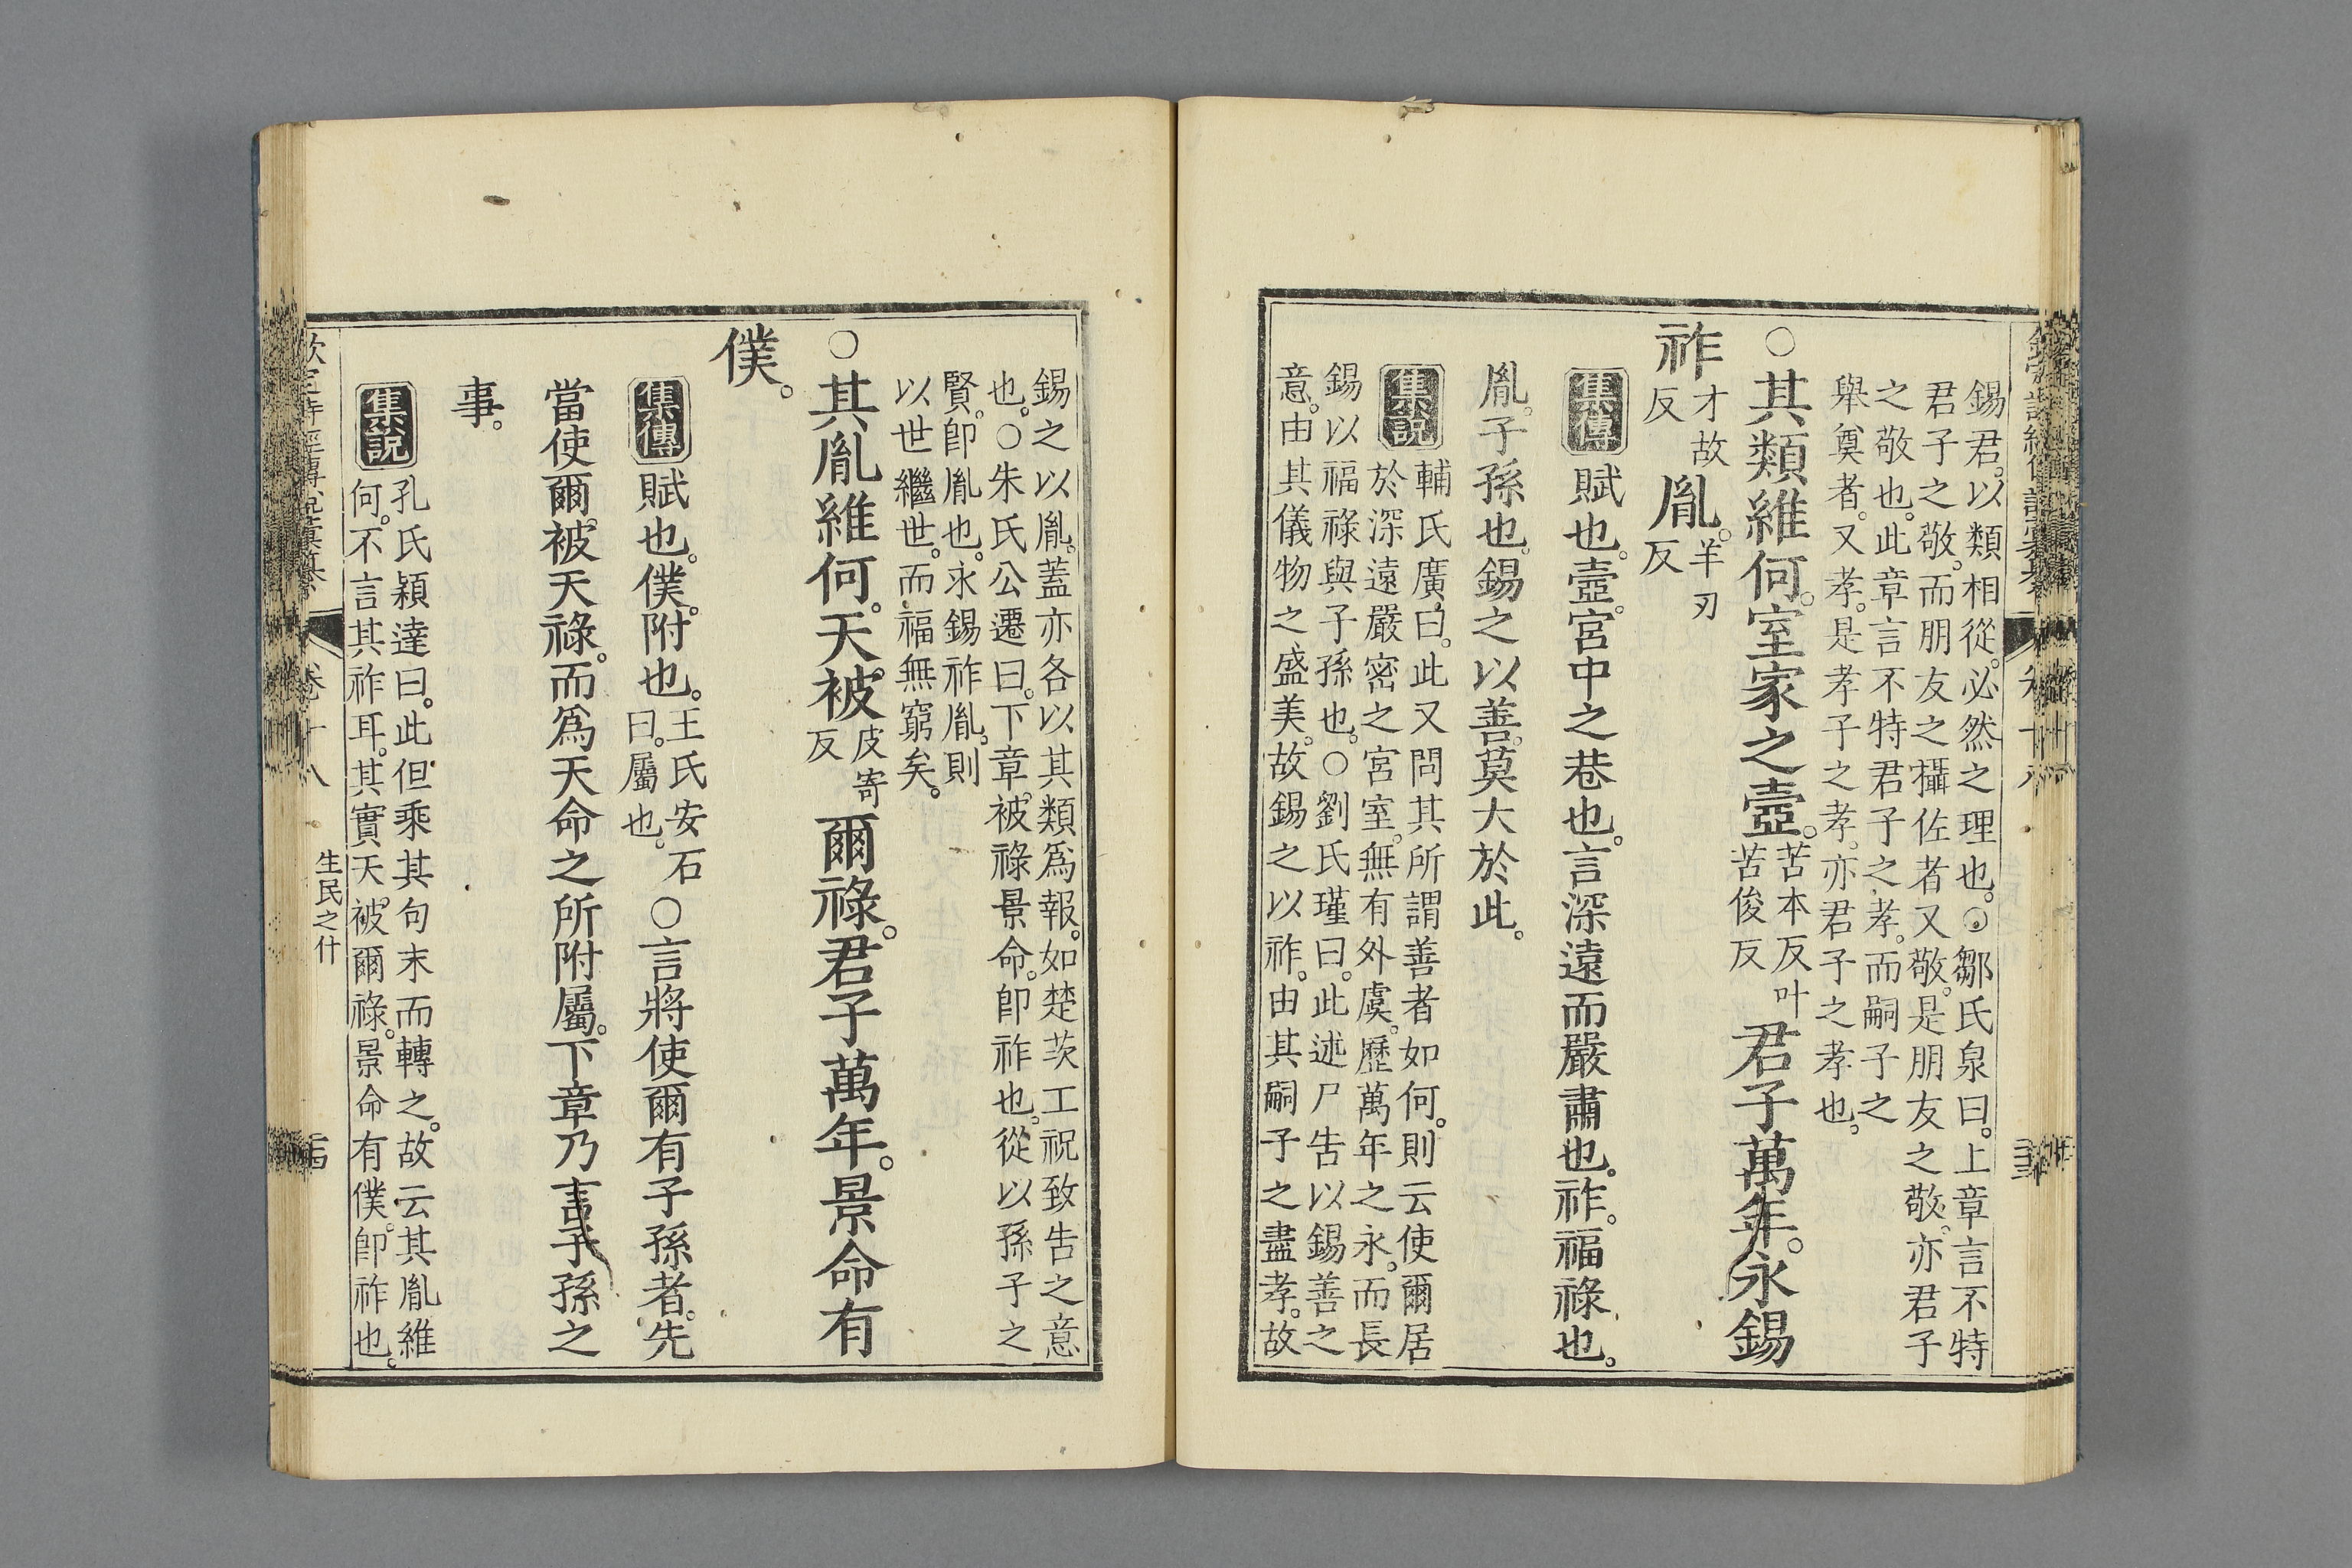 錫君。以類相從。必然之理也。○鄒氏泉曰。上章言不特
君子之敬。而朋友之攝佐者又敬。是朋友之敬。亦君子
之敬也。此章言不特君子之孝。而嗣子之
舉奠者。又孝。是孝子之孝。亦君子之孝也。
○其類維何。室家之壼。苦本反叶苦俊反君子萬年。永錫
祚才故反胤。羊刃反
集傳賦也。壼。宮中之巷也。言深遠而嚴肅也。祚。福祿也。
胤。子孫也。錫之以善。莫大於此。
集說輔氏廣曰。此又問其所謂善者如何。則云使爾居
於深遠嚴密之宮室。無有外虞。歷萬年之永。而長
錫以福祿與子孫也。○劉氏瑾曰。此述尸告以錫善之
意。由其儀物之盛美。故錫之以祚。由其嗣子之盡孝。故
錫之以胤。蓋亦各以其類爲報。如楚茨工祝致告之意
也。○朱氏公遷曰。下章。被祿景命。卽祚也。從以孫子之
賢。卽胤也。永錫祚胤。則
以世繼世。而福無窮矣。
○其胤維何。天被皮寄反爾祿。君子萬年。景命有
僕。
集傳賦也。僕。附也。王氏安石曰。屬也。○言將使爾有子孫者。先
當使爾被天祿。而爲天命之所附屬。下章乃言子孫之
事。
集說孔氏穎達曰。此但乘其句末而轉之。故云其胤維
何。不言其祚耳。其實天被爾祿。景命有僕。卽祚也。
卷十八
生民之什